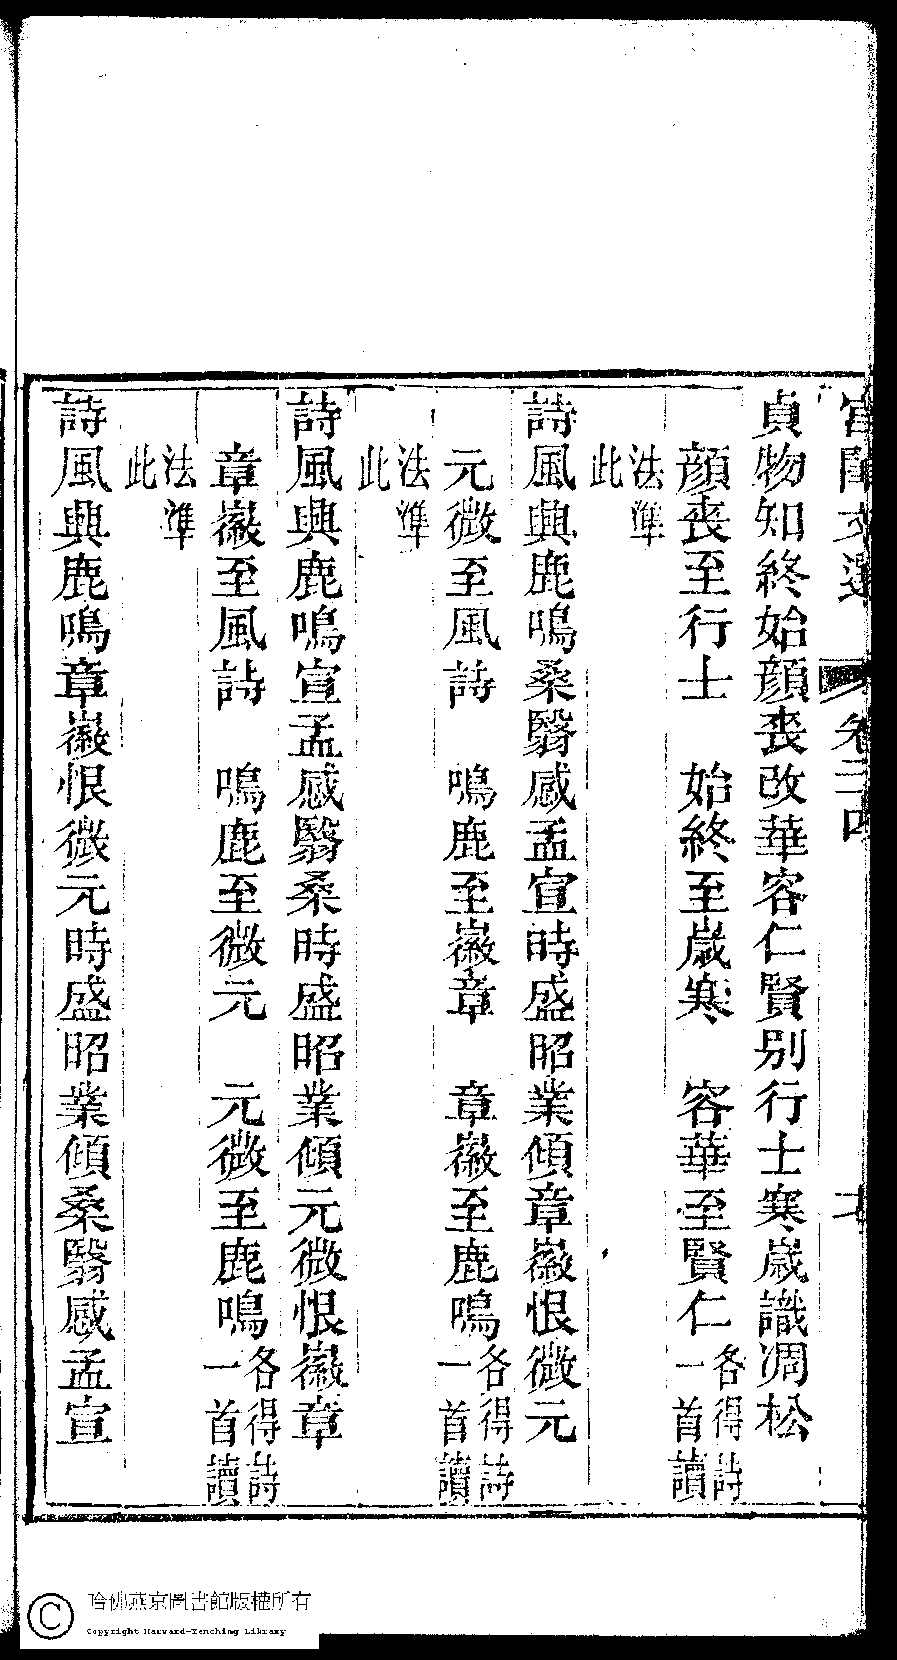 宮閨文選 卷二四
貞物知終始顔喪改華容仁賢别行士寒歳識凋松
顔喪至行士　始終至歳寒　容華至賢仁各得詩一首讀
法準此
詩風興鹿鳴桑翳感孟宣時盛昭業傾章徽恨微元
元微至風詩　鳴鹿至徽章　章徽至鹿鳴各得詩一首讀
法準此
詩風興鹿鳴宣孟感翳桑時盛昭業傾元微恨徽章
章徽至風詩　鳴鹿至微元　元微至鹿鳴各得詩一首讀
法準此
詩風興鹿鳴章徽恨微元時盛昭業傾桑翳感孟宣
哈佛燕京圖書館版權所有
Copyright Harvard-Yenching Library